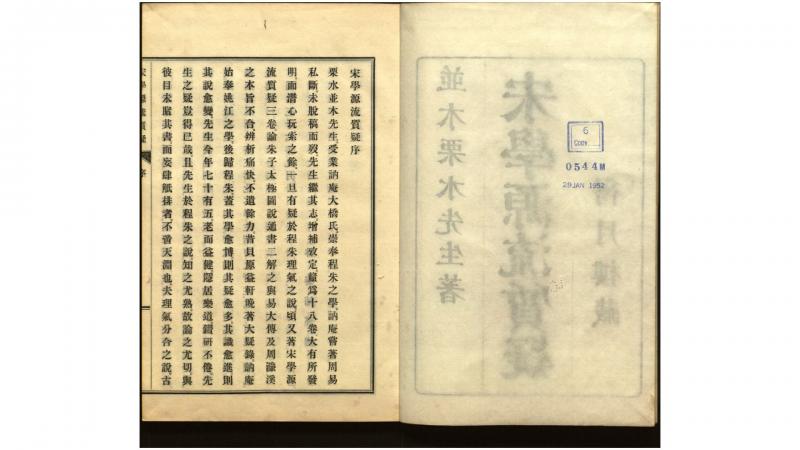 6
0544M
29 JAN 1952
宋學源流質疑
並木栗水先生著
宋學源流質疑序
栗水並木先生、受業訥庵大橋氏、崇奉程朱之學、訥庵嘗著周易
私斷、未脫稿而歿、先生繼其志、增補攷定、釐爲十八卷、大有所發
明、而潛心玩索之餘、一旦有疑於程朱理氣之說、頃又著宋學源
流質疑三卷、論朱子太極圖說通書二解之與易大傳及周濂溪
之本旨不合、辨析痛快、不遺餘力、昔貝原益軒晚著大疑錄、訥庵
始奉姚江之學、後歸程朱、蓋其學愈博、則其疑愈多、其識愈進、則
其說愈變、先生今年七十有五、老而益健、隱居樂道、鑽研不倦、先
生之疑豈得已哉、且先生於程朱之說、知之尤熟、故論之尤切、與
彼目未覩其書而妄肆觝排者、不啻天淵也、夫理氣分合之說、古
宋學源流質疑 序